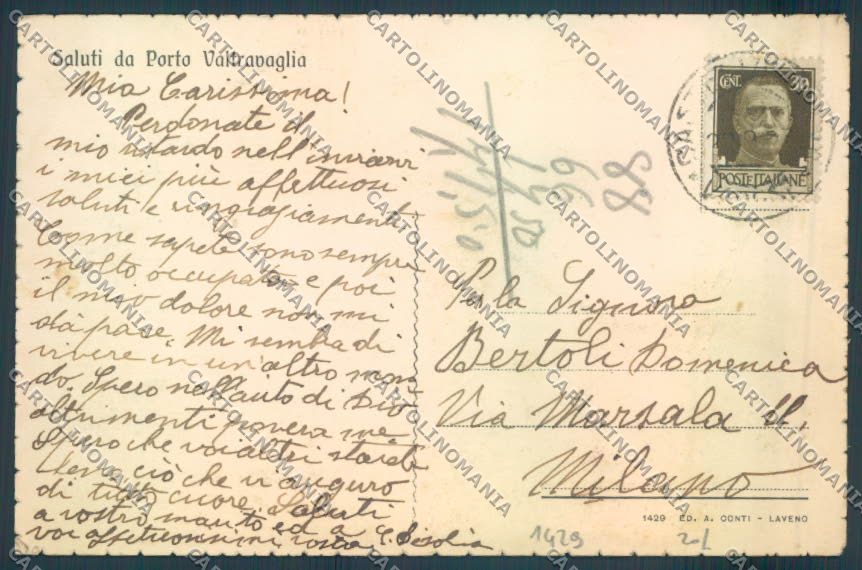 Saluti da Porto Valtravaglia
Mia Carissima!
Perdonate il
mio ritardo nell'inviarvi
i miei più affettuosi
saluti e ringraziamenti
Come sapete sono sempre
molto occupata e poi
il mio dolore non mi
dà pace. Mi sembra di
vivere in un altro mon
do. Spero nell'aiuto di Dio
altrimenti povera me
Spero che voialtri state
bene ciò che vi auguro
di tutto cuore. Saluti
a vostro marito ed a
voi affettuosissimi vostra
CENT. 30
POSTE ITALIANE
88
66
Per la Signora
Bertoli Domenica
Via Marsala
Milano
1429 ED. A. CONTI - LAVENO
1429
CARTOLINOMANIA